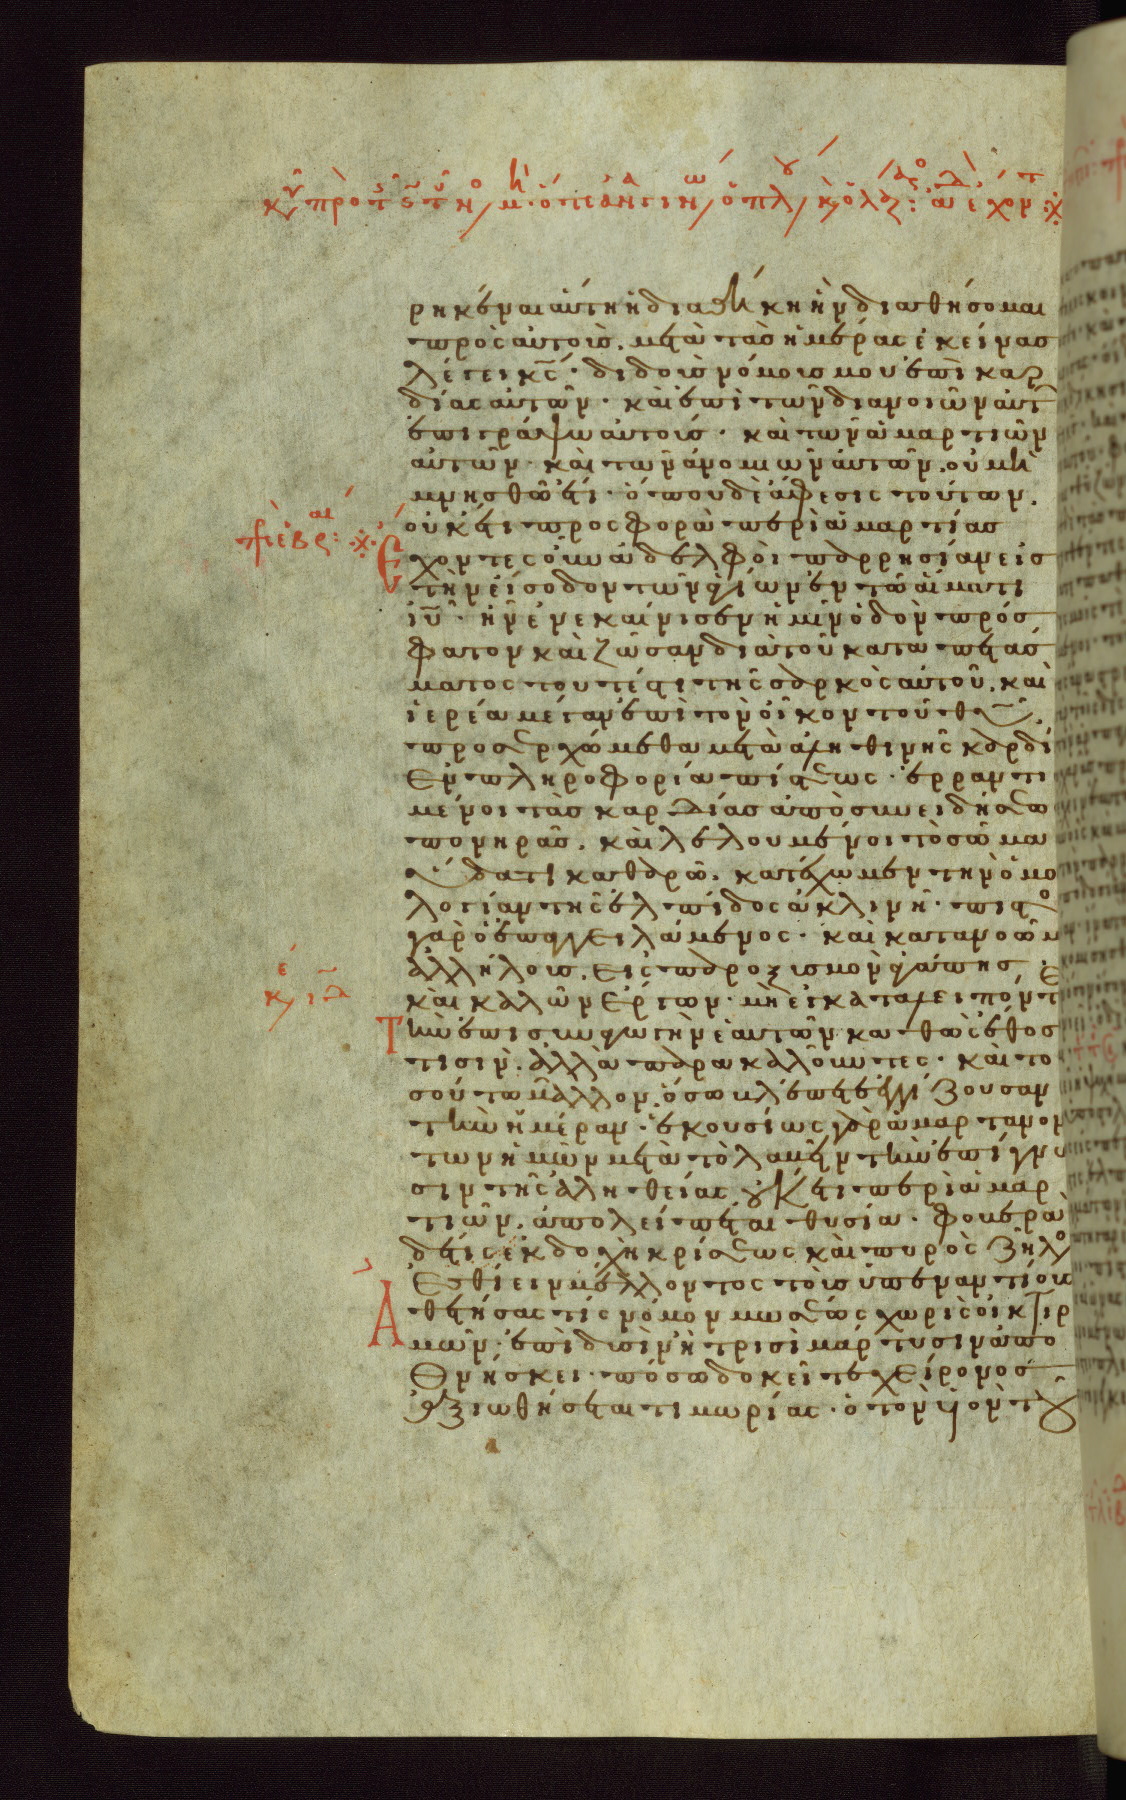 ρηκέναι αύτη ἡ διαθήκη ἣν διαθήσομαι
πρὸς αὐτοὺσ. μετὰ τὰσ ἡμέρας ἐκείνασ
λέγει κ̅ς̅. διδοὺσ νόμουσ μου ἐπὶ καρ
δίας αὐτῶν. καὶ ἐπὶ τῶν διανοιῶν αὐτ
ἐπιγράψω αὐτούσ. καὶ τῶν ἁμαρτιῶν
αὐτῶν καὶ τῶν ἀνομιῶν αὐτῶν. οὐ μὴ
μνησθῶ ἔτι. ὅπου δὲ ἄφεσις τούτων.
οὐκέτι προσφορὰ περὶ ἁμαρτίασ
Εχοντες οὖν ἀδελφοὶ παρρησίαν εἰσ
τὴν εἴσοδον τῶν ἁγίων ἐν τῶ αἵματι
ἰ̅υ̅. ἣν ἐνεκαίνισεν ἡμῖν ὁδὸν πρόσ
φατον καὶ ζῶσαν διὰ τοῦ καταπετάσ
ματος τουτέστι τῆς σαρκὸς αὐτοῦ. καὶ
ἱερέα μέγαν ἐπὶ τὸν οἶκον τοῦ θ̅υ̅
προσερχώμεθα μετὰ ἀληθινῆς καρδί
Εν πληροφορία πίστεως. ἐρραντι
μένοι τὰσ καρδίασ ἀπὸ συνειδήσεω
πονηρᾶσ. καὶ λελουμένοι τὸ σῶμα
ὕδατι καθαρῶ. κατέχωμεν τὴν ὁμο
λογίαν τῆς ἐλπίδος ἀκλινῆ. πιστὸ
γὰρ ὁ ἐπαγγειλάμενος. καὶ κατανοῶμ
ἀλλήλουσ. εἰς παροξισμὸν ἀγάπησ
καὶ καλῶν ἔργων. μὴ ἐγκαταλειπόντε
Τὴν ἐπισυναγωγὴν ἑαυτῶν καθὼς ἔθοσ
τισίν. ἀλλὰ παρακαλοῦντες. καὶ το
σούτω μᾶλλον. ὅσω βλέπετε ἐγγίζουσαν
τὴν ἡμέραν. ἑκουσίως γὰρ ἁμαρτανον
των ἡμῶν μετὰ τὸ λαβεῖν τὴν ἐπίγνω
σιν τῆς ἀληθείας οὐκέτι περὶ ἁμαρ
τιῶν. ἀπολείπεται θυσία. φοβερὰ
δέ τις ἐκδοχὴ κρίσεως καὶ πυρὸς ζῆλο
Ἐσθίειν μέλλοντος τοὺσ ὑπεναντίουσ
Ἀθετήσας τίς νόμον μωσέως χωρὶς οἰκτιρ
μῶν. ἐπὶ δυσὶν ἢ τρισὶ μάρτυσιν ἀπο
θνήσκει. πόσω δοκεῖτε χείρονοσ
ἀξιωθήσεται τιμωρίας. ὁ τὸν υἱὸν τοῦ